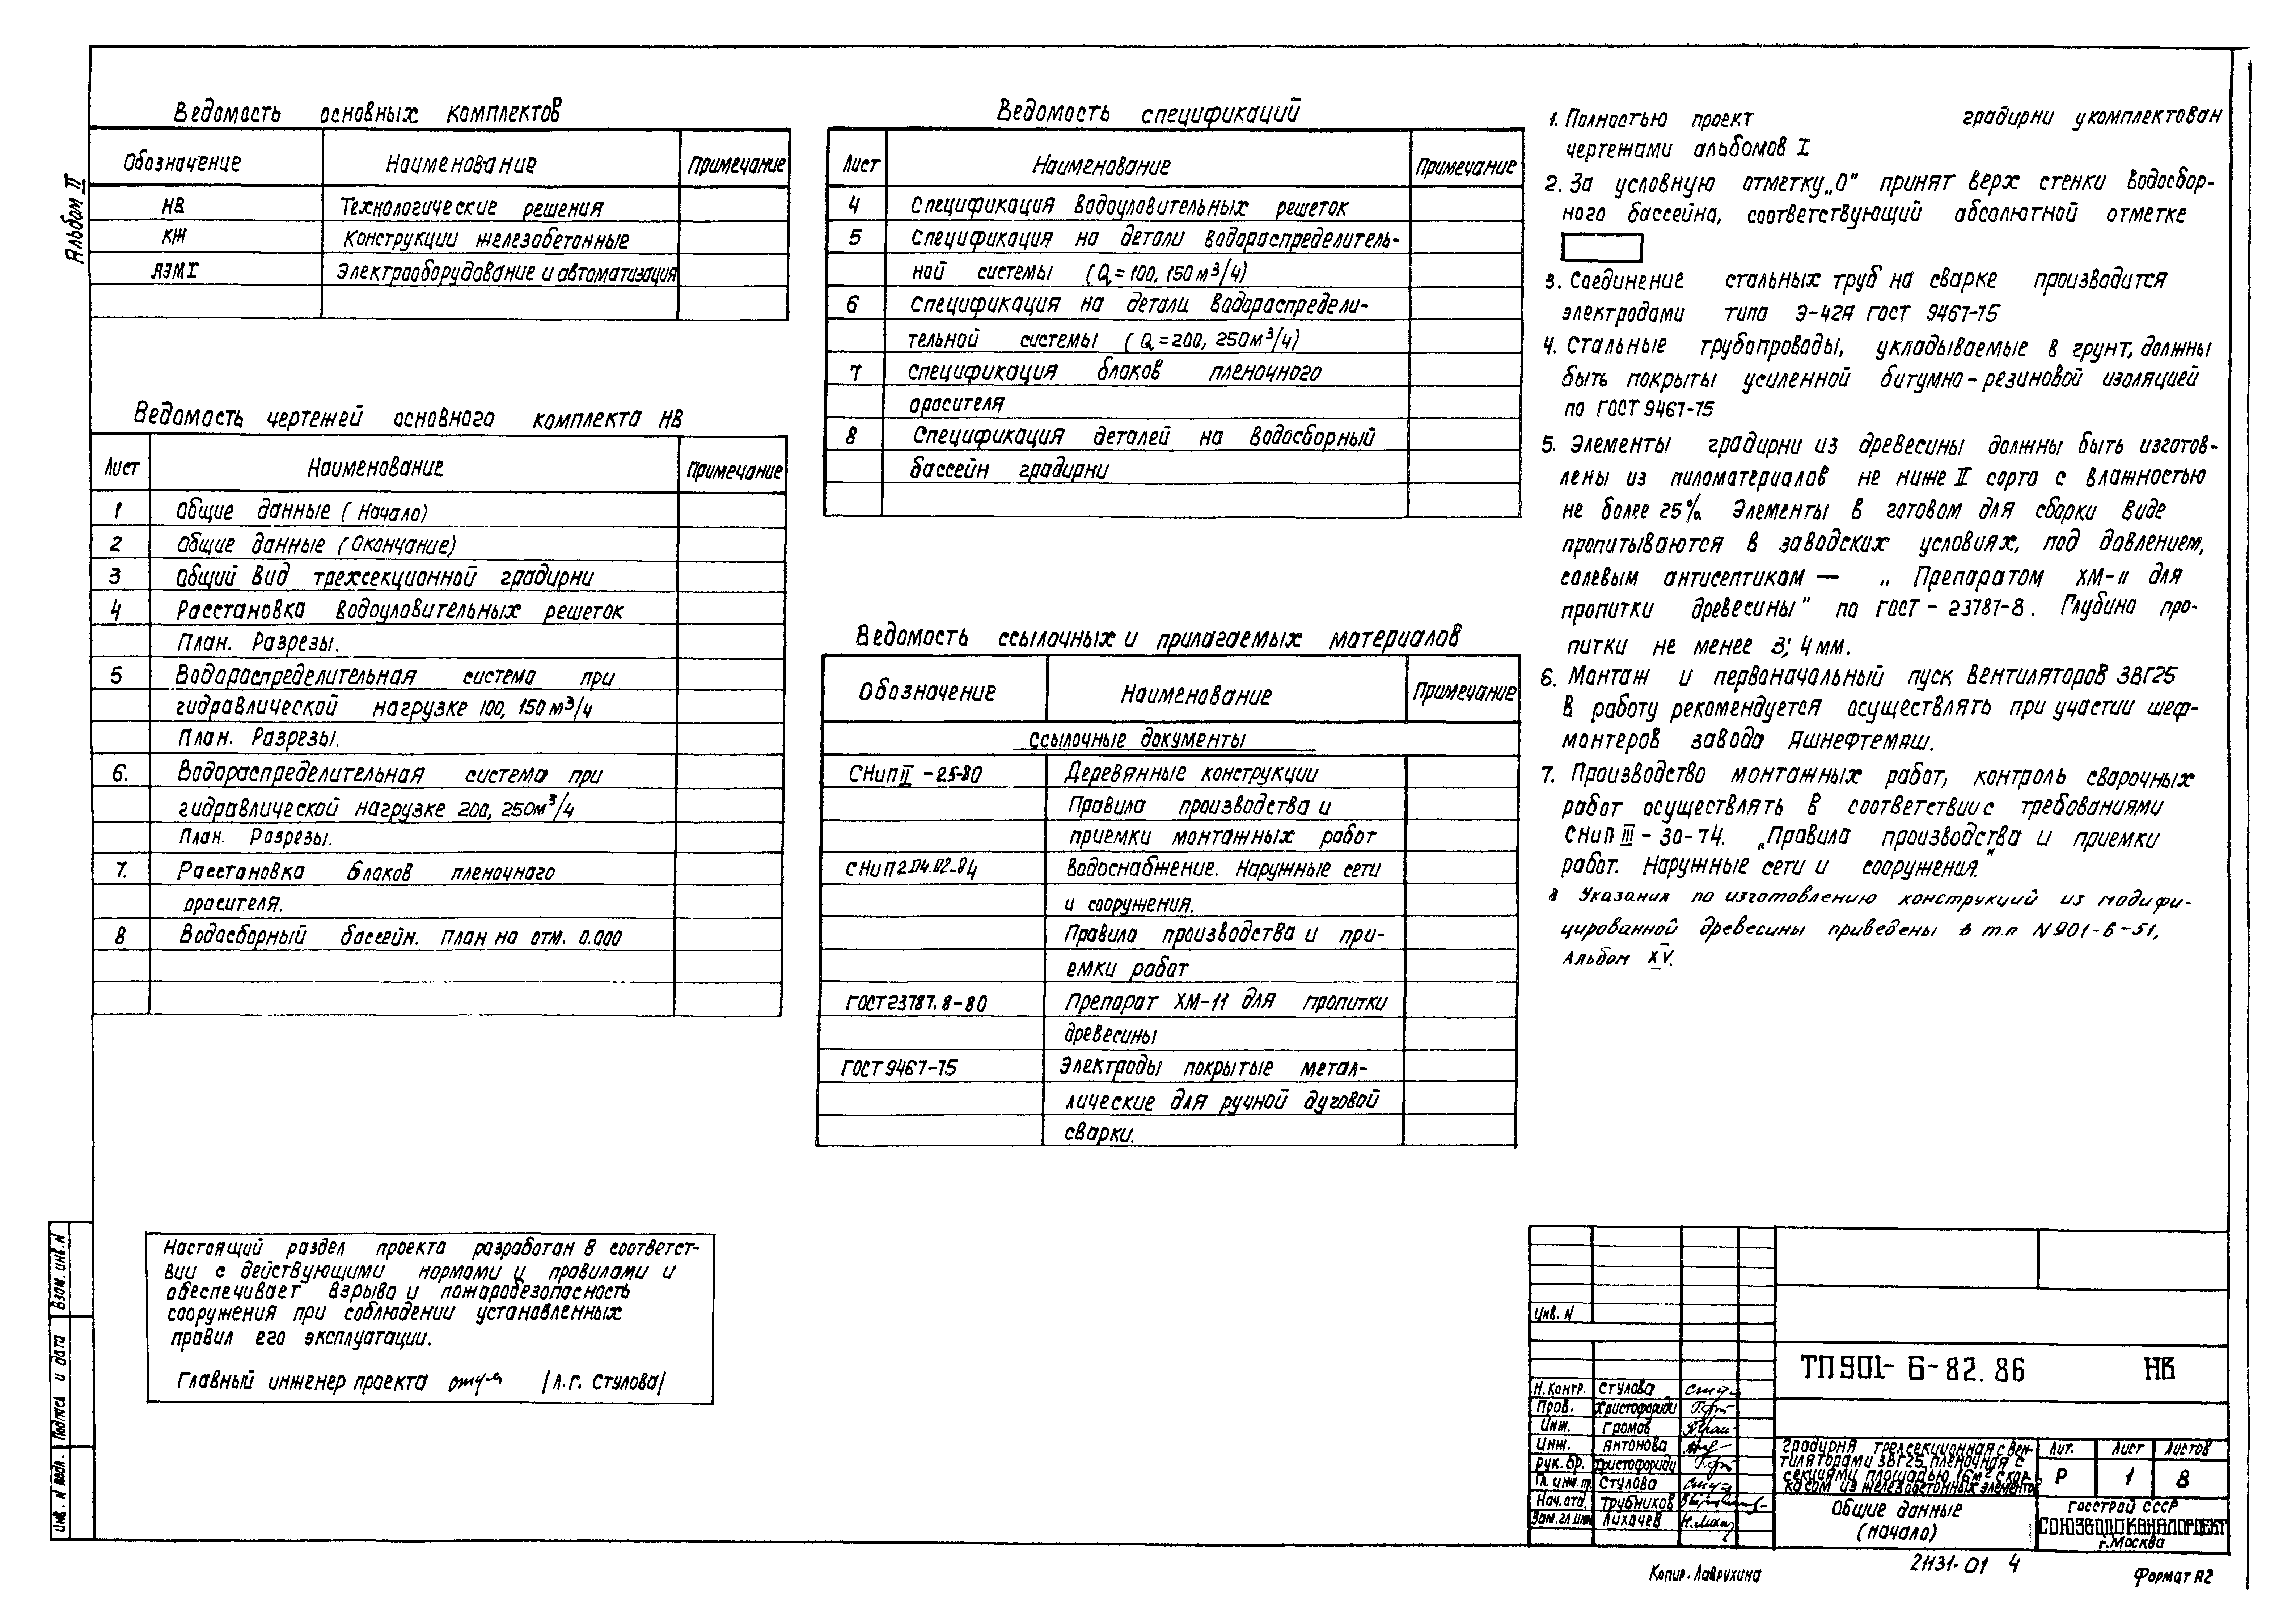 Альбом II
Ведомость основных комплектов
Обозначение Наименование Примечание
НВ Технологические решения
КЖ Конструкции железобетонные
АЭМ I Электрооборудование и автоматизация
Ведомость чертежей основного комплекта НВ
Лист Наименование Примечание
1 Общие данные (Начало)
2 Общие данные (Окончание)
3 Общий вид трехсекционной градирни
4 Расстановка водоуловительных решеток
План. Разрезы.
5 Водораспределительная система при
гидравлической нагрузке 100, 150 м³/ч
План. Разрезы.
6. Водораспределительная система при
гидравлической нагрузке 200, 250 м³/ч
План. Разрезы.
7. Расстановка блоков пленочного
оросителя.
8 Водосборный бассейн. План на отм. 0.000
Настоящий раздел проекта разработан в соответст-
вии с действующими нормами и правилами и
обеспечивает взрыво и пожаробезопасность
сооружения при соблюдении установленных
правил его эксплуатации.
Главный инженер проекта /Л.Г. Стулова/
Ведомость спецификаций
Лист Наименование Примечание
4 Спецификация водоуловительных решеток
5 Спецификация на детали водораспределитель-
ной системы (Q = 100, 150 м³/ч)
6 Спецификация на детали водораспредели-
тельной системы (Q = 200, 250 м³/ч)
7 Спецификация блоков пленочного
оросителя
8 Спецификация деталей на водосборный
бассейн градирни
Ведомость ссылочных и прилагаемых материалов
Обозначение Наименование Примечание
Ссылочные документы
СНиП II - 25-80 Деревянные конструкции
Правила производства и
приемки монтажных работ
СНиП 2.04.02-84 Водоснабжение. Наружные сети
и сооружения.
Правила производства и при-
емки работ
ГОСТ 23787.8-80 Препарат ХМ-11 для пропитки
древесины
ГОСТ 9467-75 Электроды покрытые метал-
лические для ручной дуговой
сварки.
1. Полностью проект градирни укомплектован
чертежами альбомов I
2. За условную отметку „0" принят верх стенки водосбор-
ного бассейна, соответствующий абсолютной отметке
3. Соединение стальных труб на сварке производится
электродами типа Э-42А ГОСТ 9467-75
4. Стальные трубопроводы, укладываемые в грунт, должны
быть покрыты усиленной битумно-резиновой изоляцией
по ГОСТ 9467-75
5. Элементы градирни из древесины должны быть изготов-
лены из пиломатериалов не ниже II сорта с влажностью
не более 25%. Элементы в готовом для сборки виде
пропитываются в заводских условиях, под давлением,
солевым антисептиком — „ Препаратом ХМ-11 для
пропитки древесины" по ГОСТ - 23787-8. Глубина про-
питки не менее 3; 4 мм.
6. Монтаж и первоначальный пуск вентиляторов 3ВГ25
в работу рекомендуется осуществлять при участии шеф-
монтеров завода Яшнефтемаш.
7. Производство монтажных работ, контроль сварочных
работ осуществлять в соответствии с требованиями
СНиП III - 30-74. „Правила производства и приемки
работ. Наружные сети и сооружения."
8 Указания по изготовлению конструкций из модифи-
цированной древесины приведены в т.п N 901-6-51,
Альбом XV.
Взам. инв. N
Подпись и дата
Инв. N подл.
Инв. N
ТП 901-6-82.86 НВ
Н. контр. Стулова
Пров. Христофориди
Инж. Громов
Инж. Антонова
Рук. бр. Христофориди
Гл. инж. пр. Стулова
Нач. отд. Трубников
Зам. гл. инж Лихачев
Градирня трехсекционная с вен-
тиляторами 3ВГ25, пленочная с
секциями площадью 16 м² с кар-
касом из железобетонных элементов
Лит. Лист Листов
Р 1 8
Общие данные
(начало)
Госстрой СССР
СОЮЗВОДОКАНАЛПРОЕКТ
г. Москва
Копир. Лаврухина
21131-01 4
Формат А2